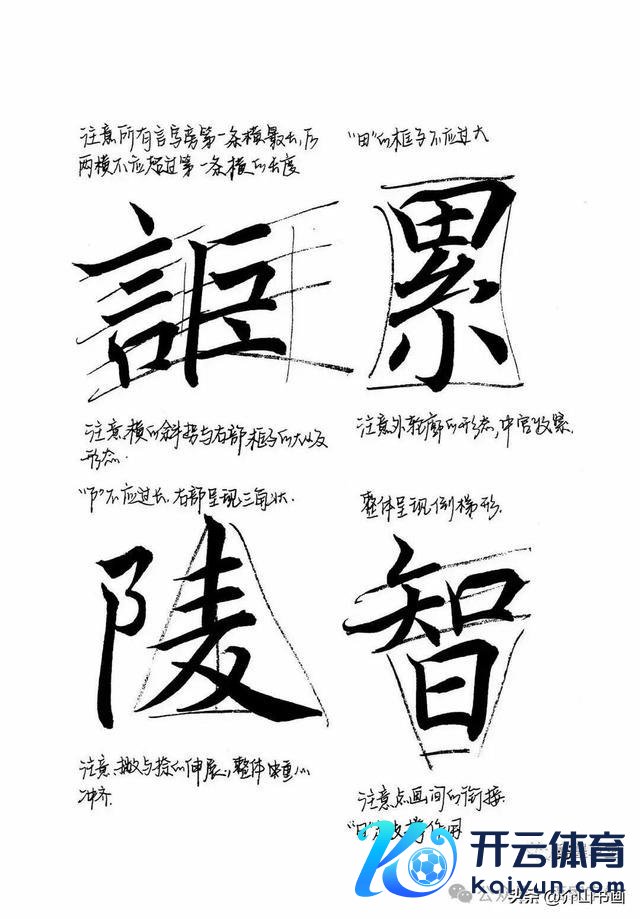 注意所有言字旁第一条横最长,后
两横不应超过第一条横的长度
"田"的框子不应过大
詎
累
注意横的斜势与右部框子的大小及
形态.
注意外轮廓的形态,中宫收紧.
"阝"不应过长,右部呈现三角状.
整体呈现倒梯形.
陵
智
注意撇与捺的伸展,整体
注意点画间的衔接
支撑作用
开云体育
kaiyun.com
头条 @介山书画